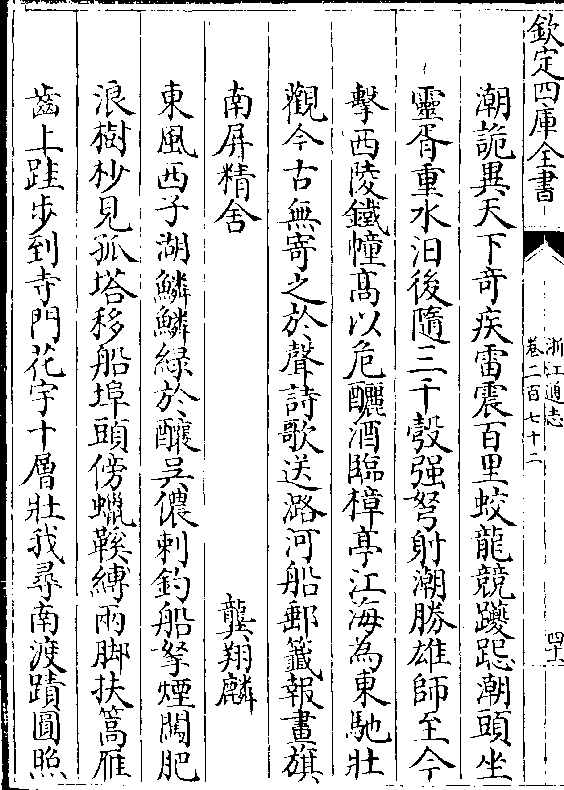 欽定四庫全書
浙江通志
卷二百七十二
四十六
潮詭異天下奇疾雷震百里蛟龍競躨跜潮頭坐
靈胥重水汩後隨三千彀强弩射潮勝雄師至今
擊西陵鐵幢高以危釃酒臨樟亭江海為東馳壯
觀今古無寄之於聲詩歌送潞河船郵籤報畫旗
南屏精舍 龔翔麟
東風西子湖鱗鱗緑於釀吴儂刺釣船拏煙闊肥
浪樹杪見孤塔移船埠頭傍蠟鞵縛兩脚扶篙雁
齒上跬步到寺門花宇十層壯我尋南渡蹟圓照